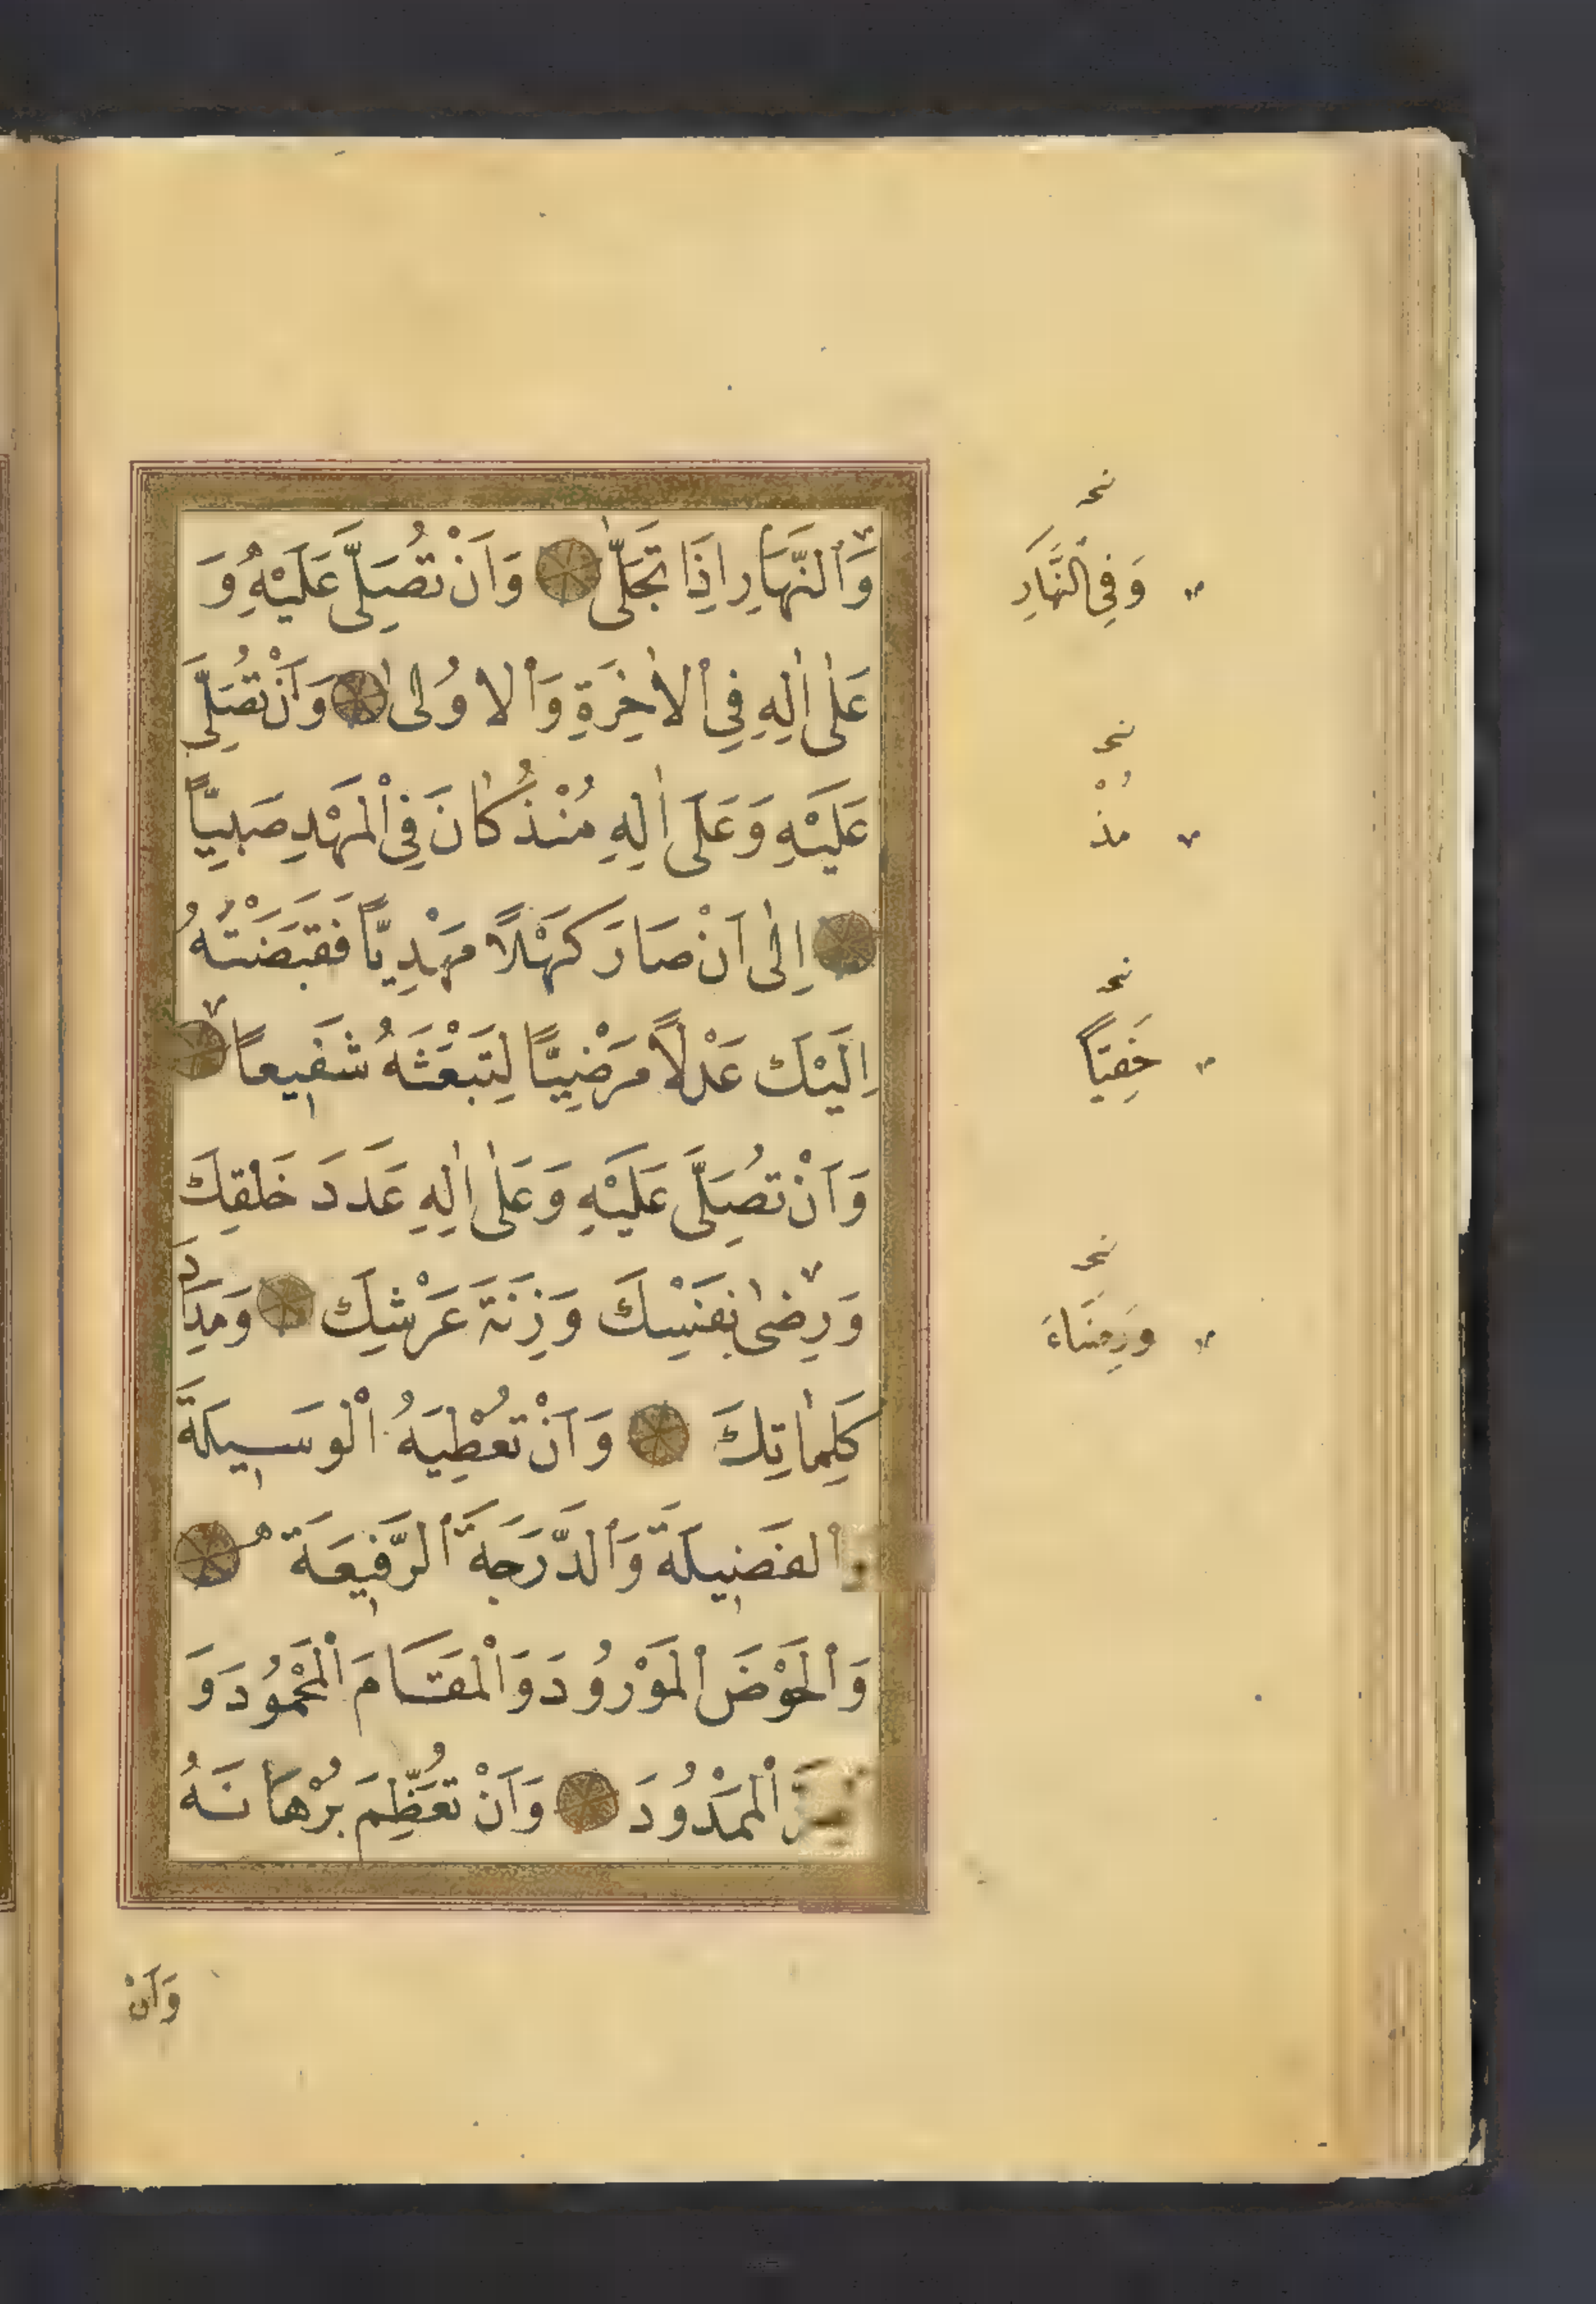 وَالنَّهَارِ اِذَا تَجَلّٰى وَاَنْ تُصَلِّىَ عَلَيْهِ وَ
عَلٰى اٰلِهِ فِى الْاٰخِرَةِ وَالْاُولٰى وَاَنْ تُصَلِّىَ
عَلَيْهِ وَعَلَى اٰلِهِ مُنْذُ كَانَ فِى الْمَهْدِ صَبِيًّا
اِلٰى اَنْ صَارَ كَهْلًا مَهْدِيًّا فَقَبَضْتَهُ
اِلَيْكَ عَدْلًا مَرْضِيًّا لِتَبْعَثَهُ شَفِيعًا
وَاَنْ تُصَلِّىَ عَلَيْهِ وَعَلٰى اٰلِهِ عَدَدَ خَلْقِكَ
وَرِضٰى نَفْسِكَ وَزِنَةَ عَرْشِكَ وَمِدَادَ
كَلِمَاتِكَ وَاَنْ تُعْطِيَهُ الْوَسِيلَةَ
الْفَضِيلَةَ وَالدَّرَجَةَ الرَّفِيعَةَ
وَالْحَوْضَ الْمَوْرُودَ وَالْمَقَامَ الْمَحْمُودَ وَ
الْمَمْدُودَ وَاَنْ تُعَظِّمَ بُرْهَانَهُ
وَاَنْ
وَفِى النَّهَارِ
مُذْ
خَفِيًّا
وَرِضَاءَ